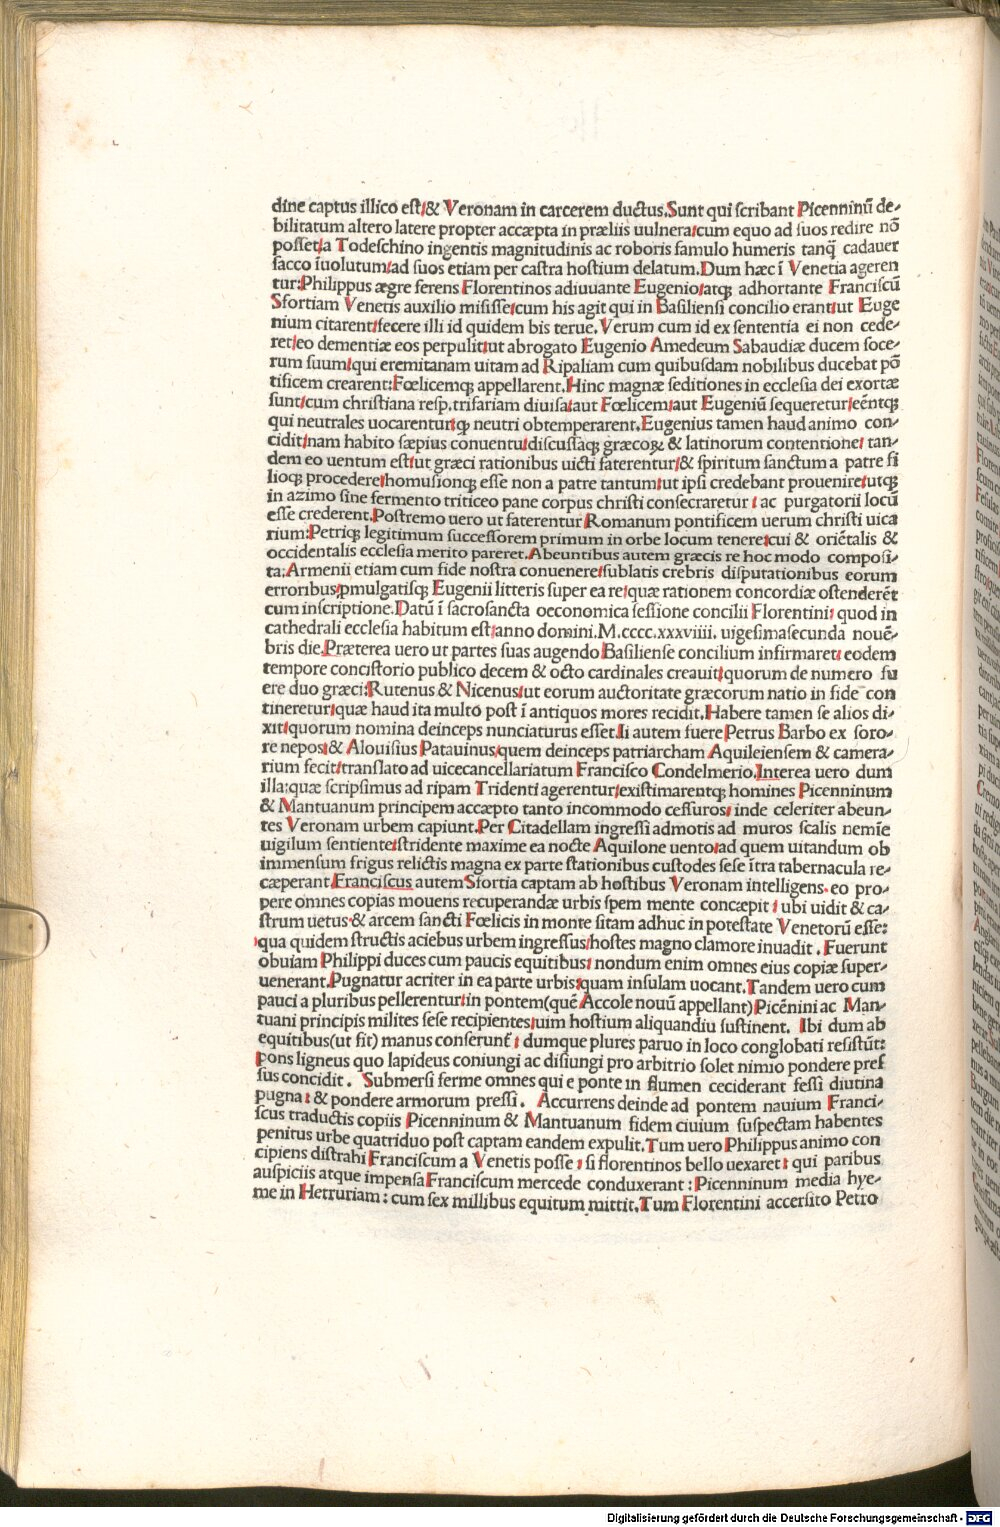 dine captus illico est/& Veronam in carcerem ductus.Sunt qui scribant Picenninū de-
bilitatum altero latere propter accæpta in præliis uulnera/cum equo ad suos redire nō
posset/a Todeschino ingentis magnitudinis ac roboris famulo humeris tanq̃ cadauer
sacco īuolutum/ad suos etiam per castra hostium delatum.Dum hæc ī Venetia ageren
tur:Philippus ægre ferens Florentinos adiuuante Eugenio/atq; adhortante Franciscū
Sfortiam Venetis auxilio misisse/cum his agit qui in Basiliensi concilio erant/ut Euge
nium citarent/fecere illi id quidem bis terue.Verum cum id ex sententia ei non cede-
ret/eo dementiæ eos perpulit/ut abrogato Eugenio Amedeum Sabaudiæ ducem soce-
rum suum/qui eremitanam uitam ad Ripaliam cum quibusdam nobilibus ducebat pō
tificem crearent:Fœlicemq; appellarent.Hinc magnæ seditiones in ecclesia dei exortæ
sunt/cum christiana resp.trifariam diuisa/aut Fœlicem/aut Eugeniū sequeretur/eēntq;
qui neutrales uocarentur/q; neutri obtemperarent.Eugenius tamen haud animo con-
cidit/nam habito sæpius conuentu/discussaq; græcoꝝ & latinorum contentione/ tan-
dem eo uentum est/ut græci rationibus uicti faterentur/& spiritum sanctum a patre fi
lioq; procedere/homusionq; esse non a patre tantum/ut ipsi credebant prouenire/utq;
in azimo sine fermento triticeo pane corpus christi consecraretur / ac purgatorii locū
esse crederent.Postremo uero ut faterentur Romanum pontificem uerum christi uica
rium:Petriq; legitimum successorem primum in orbe locum tenere/cui & oriētalis &
occidentalis ecclesia merito pareret.Abeuntibus autem græcis re hoc modo composi-
ta:Armenii etiam cum fide nostra conuenere/sublatis crebris disputationibus eorum
erroribus/ꝓmulgatisq; Eugenii litteris super ea re/quæ rationem concordiæ ostenderēt
cum inscriptione.Datū ī sacrosancta oeconomica sessione concilii Florentini/ quod in
cathedrali ecclesia habitum est/anno domini.M.cccc.xxxviiii. uigesimasecunda nouē-
bris die.Præterea uero ut partes suas augendo Basiliense concilium infirmaret/ eodem
tempore concistorio publico decem & octo cardinales creauit/quorum de numero fu
ere duo græci:Rutenus & Nicenus/ut eorum auctoritate græcorum natio in fide con
tineretur/quæ haud ita multo post ī antiquos mores recidit.Habere tamen se alios di-
xit/quorum nomina deinceps nunciaturus esset.Ii autem fuere Petrus Barbo ex soro-
re nepos/& Alouisius Patauinus/quem deinceps patriarcham Aquileiensem & camera-
rium fecit/translato ad uicecancellariatum Francisco Condelmerio.Interea uero dum
illa:quæ scripsimus ad ripam Tridenti agerentur/existimarentq; homines Picenninum
& Mantuanum principem accæpto tanto incommodo cessuros/ inde celeriter abeun-
tes Veronam urbem capiunt.Per Citadellam ingressi admotis ad muros scalis nemīe
uigilum sentiente/stridente maxime ea nocte Aquilone uento/ad quem uitandum ob
immensum frigus relictis magna ex parte stationibus custodes sese ītra tabernacula re-
cæperant.Franciscus autem Sfortia captam ab hostibus Veronam intelligens.eo pro-
pere omnes copias mouens recuperandæ urbis spem mente concæpit / ubi uidit & ca-
strum uetus & arcem sancti Fœlicis in monte sitam adhuc in potestate Venetorū esse:
qua quidem structis aciebus urbem ingressus/hostes magno clamore inuadit . Fuerunt
obuiam Philippi duces cum paucis equitibus/ nondum enim omnes eius copiæ super-
uenerant.Pugnatur acriter in ea parte urbis:quam insulam uocant.Tandem uero cum
pauci a pluribus pellerentur/in pontem(quē Accole nouū appellant)Picēnini ac Man-
tuani principis milites sese recipientes/uim hostium aliquandiu sustinent. Ibi dum ab
equitibus(ut fit) manus conserunt̄ / dumque plures paruo in loco conglobati resistūt:
pons ligneus quo lapideus coniungi ac disiungi pro arbitrio solet nimio pondere pres
sus concidit . Submersi ferme omnes qui e ponte in flumen ceciderant fessi diutina
pugna / & pondere armorum pressi . Accurrens deinde ad pontem nauium Franci-
scus traductis copiis Picenninum & Mantuanum fidem ciuium suspectam habentes
penitus urbe quatriduo post captam eandem expulit.Tum uero Philippus animo con
cipiens distrahi Franciscum a Venetis posse / si florentinos bello uexaret / qui paribus
auspiciis atque impensa Franciscum mercede conduxerant : Picenninum media hye-
me in Hetruriam : cum sex millibus equitum mittit.Tum Florentini accersito Petro
Digitalisierung gefördert durch die Deutsche Forschungsgemeinschaft - DFG